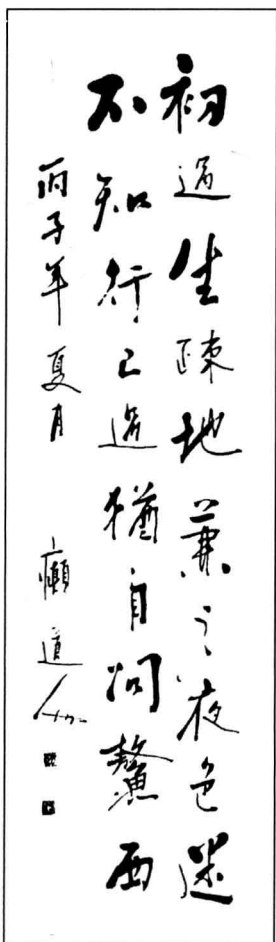 初過生疎地兼之夜色迷
不知行已過猶自問鰲西
丙子年夏月 癩道人